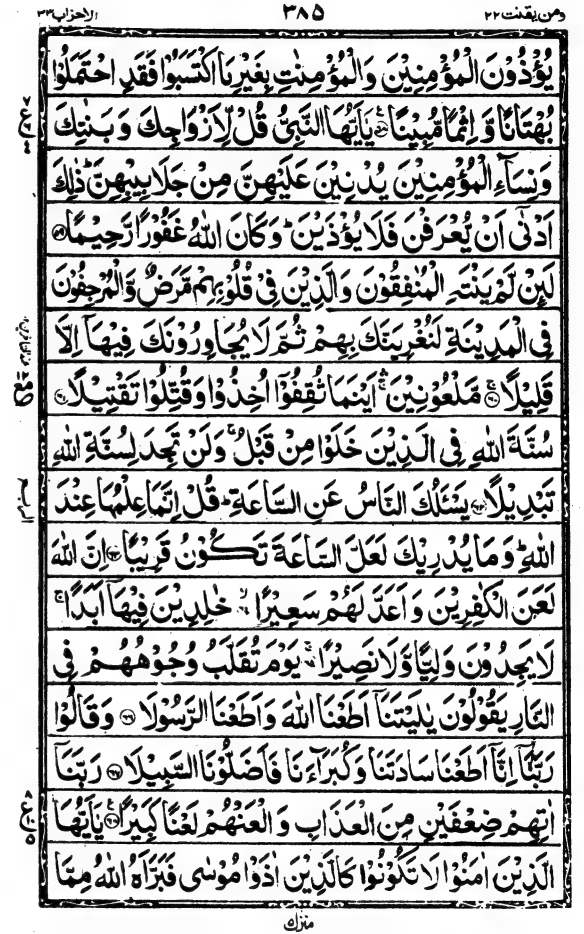 ومن یقنت ٢٢ ٣٨٥ الاحزاب ٣٣
يُؤْذُوْنَ الْمُؤْمِنِيْنَ وَالْمُؤْمِنٰتِ بِغَيْرِ مَا اكْتَسَبُوْا فَقَدِ احْتَمَلُوْا
بُهْتَانًا وَّاِثْمًا مُّبِيْنًا ۟ يٰۤاَيُّهَا النَّبِيُّ قُلْ لِّاَزْوَاجِكَ وَبَنٰتِكَ
وَنِسَآءِ الْمُؤْمِنِيْنَ يُدْنِيْنَ عَلَيْهِنَّ مِنْ جَلَابِيْبِهِنَّ ؕ ذٰلِكَ
اَدْنٰۤى اَنْ يُّعْرَفْنَ فَلَا يُؤْذَيْنَ ؕ وَكَانَ اللّٰهُ غَفُوْرًا رَّحِيْمًا ٥٩
لَئِنْ لَّمْ يَنْتَهِ الْمُنٰفِقُوْنَ وَالَّذِيْنَ فِيْ قُلُوْبِهِمْ مَّرَضٌ وَّالْمُرْجِفُوْنَ
فِي الْمَدِيْنَةِ لَنُغْرِيَنَّكَ بِهِمْ ثُمَّ لَا يُجَاوِرُوْنَكَ فِيْهَاۤ اِلَّا
قَلِيْلًا ٦٠ مَّلْعُوْنِيْنَ ۛ اَيْنَمَا ثُقِفُوْۤا اُخِذُوْا وَقُتِّلُوْا تَقْتِيْلًا ٦١
سُنَّةَ اللّٰهِ فِي الَّذِيْنَ خَلَوْا مِنْ قَبْلُ ۚ وَلَنْ تَجِدَ لِسُنَّةِ اللّٰهِ
تَبْدِيْلًا ٦٢ يَسْـَٔلُكَ النَّاسُ عَنِ السَّاعَةِ ؕ قُلْ اِنَّمَا عِلْمُهَا عِنْدَ
اللّٰهِ ؕ وَمَا يُدْرِيْكَ لَعَلَّ السَّاعَةَ تَكُوْنُ قَرِيْبًا ٦٣ اِنَّ اللّٰهَ
لَعَنَ الْكٰفِرِيْنَ وَاَعَدَّ لَهُمْ سَعِيْرًا ۙ خٰلِدِيْنَ فِيْهَاۤ اَبَدًا ۚ
لَا يَجِدُوْنَ وَلِيًّا وَّلَا نَصِيْرًا ۚ يَوْمَ تُقَلَّبُ وُجُوْهُهُمْ فِي
النَّارِ يَقُوْلُوْنَ يٰلَيْتَنَاۤ اَطَعْنَا اللّٰهَ وَاَطَعْنَا الرَّسُوْلَا ٦٦ وَقَالُوْا
رَبَّنَاۤ اِنَّاۤ اَطَعْنَا سَادَتَنَا وَكُبَرَآءَنَا فَاَضَلُّوْنَا السَّبِيْلَا ٦٧ رَبَّنَاۤ
اٰتِهِمْ ضِعْفَيْنِ مِنَ الْعَذَابِ وَالْعَنْهُمْ لَعْنًا كَبِيْرًا ٦٨ يٰۤاَيُّهَا
الَّذِيْنَ اٰمَنُوْا لَا تَكُوْنُوْا كَالَّذِيْنَ اٰذَوْا مُوْسٰى فَبَرَّاَهُ اللّٰهُ مِمَّا
منزل ٥